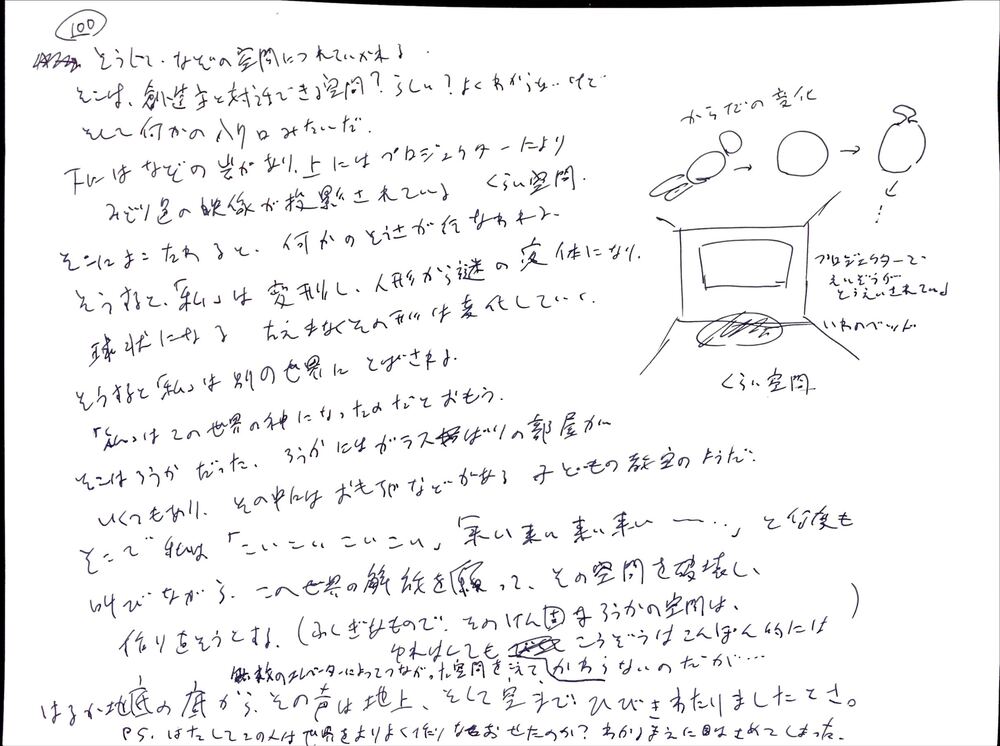 100
そうして、なぞの空間につれていかれる。
そこは、創造主と対話できる空間？らしい？よくわからないけど
そして何かの入り口みたいだ。
下にはなぞの岩があり、上にはプロジェクターにより
みどり色の映像が投影されている くらい空間。
そこによこたわると、何かのそうさが行なわれる。
そうすると、「私」は変形し、人形から謎の変体になり、
球状になる たえまなくその形は変化していく。
そうすると「私」は別の世界にとばされる。
「私」はこの世界の神になったのだとおもう。
そこはろうかだった、ろうかにはガラスばりの部屋が
いくつもあり、その中にはおもちゃなどがある子どもの教室のようだ。
そこで私は「こいこいこいこい」「来い来い来い来いー…」と何度も
叫びながら、この世界の解放を願って、その空間を破壊し、
作り直そうとする。（ふしぎなもので、そのけん固なろうかの空間は、
こうぞうはこんぽん的には
無数のエレベーターによってつながった空間を
かわらないのだが…）
はるか地底の底から、その声は地上、そして空まで、ひびきわたりましたとさ。
P.S. はたしてこの人は世界をよりよく作りなおせたのか？わかるまえに目はさめてしまった。
からだの変化
プロジェクターで、
えいぞうが
とうえいされている
いわのベッド
くらい空間